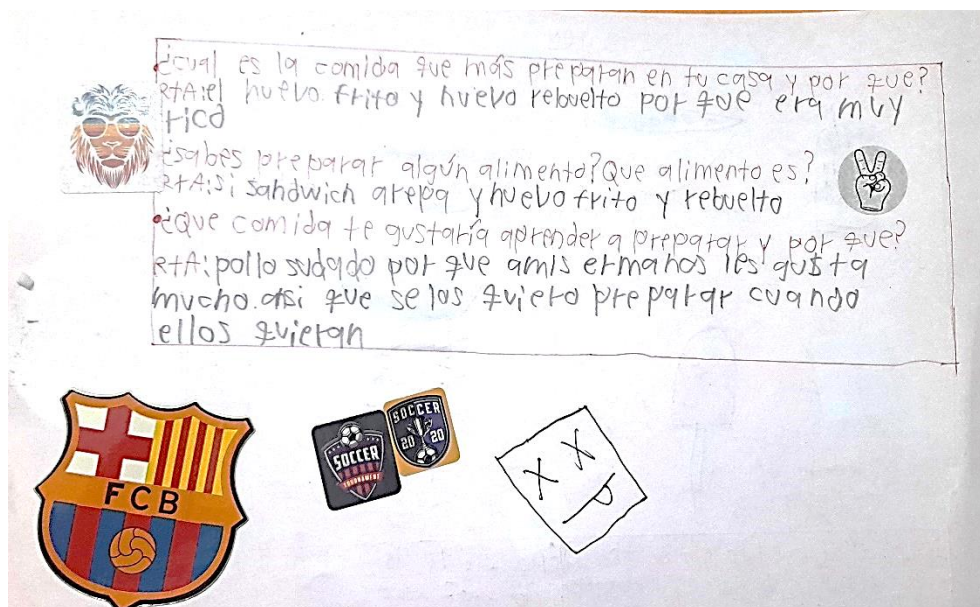 ¿cual es la comida que más preparan en tu casa y por que?
RtA:el huevo frito y huevo rebuelto por que era muy
rico
¿sabes preparar algún alimento? Que alimento es?
RtA:Si sandwich arepa y huevo frito y rebuelto
¿que comida te gustaría aprender a preparar y por que?
RtA:pollo sudado por que amis ermanos les gusta
mucho.asi que se los quiero preparar cuando
ellos quieran
FCB
SOCCER
TOURNAMENT
SOCCER
20 20